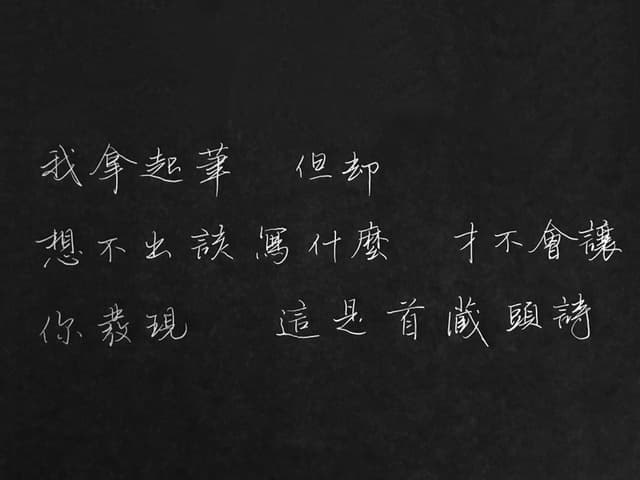 我拿起筆 但却
想不出該寫什麼 才不會讓
你發現 這是首藏頭詩